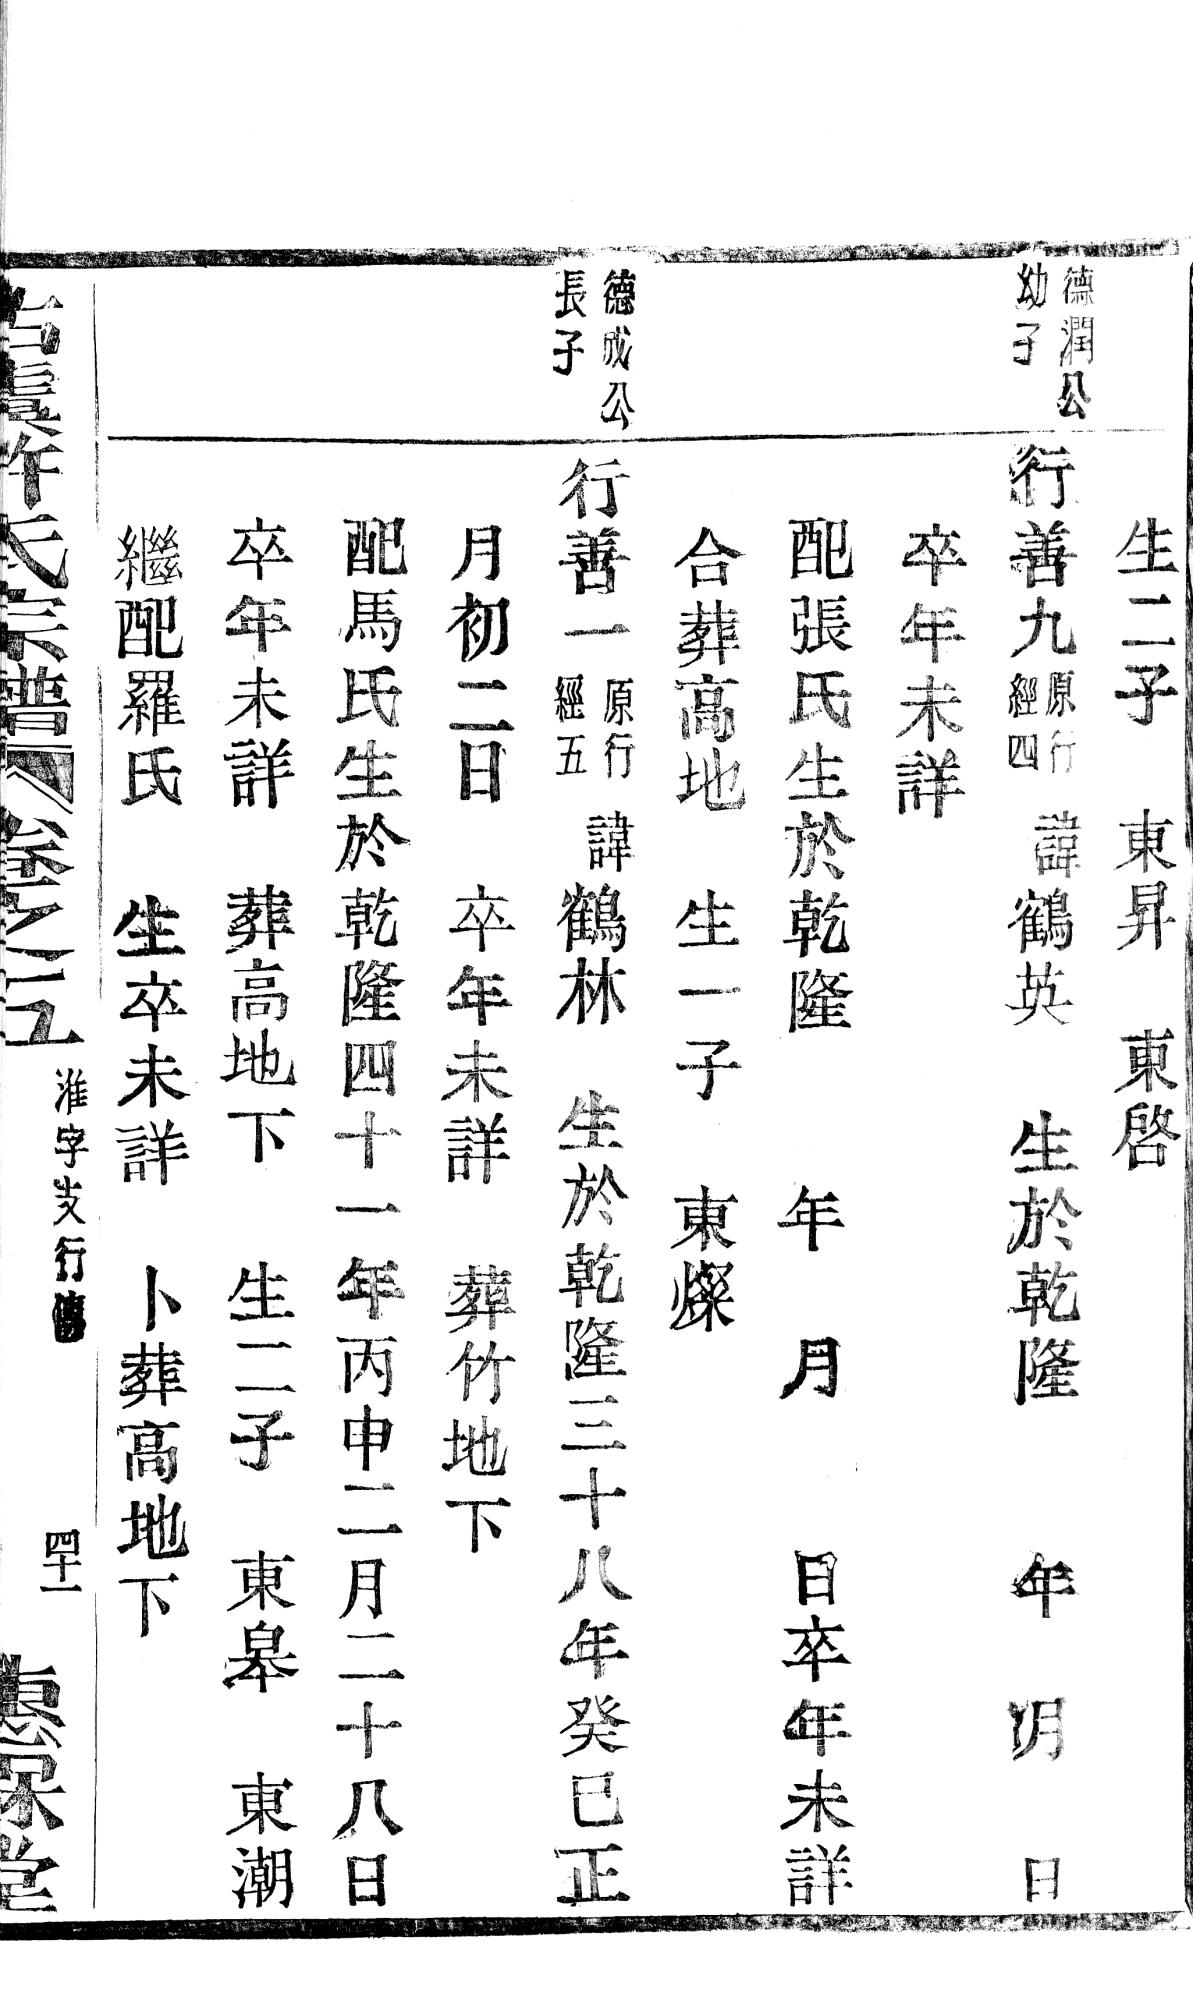 生二子　東昇　東啓
德潤公
幼子
行善九原行經四　諱鶴英　生於乾隆　年　月　日
卒年未詳
配張氏生於乾隆　年　月　日卒年未詳
合葬高地　生一子　東燦
德成公
長子
行善一原行經五　諱鶴林　生於乾隆三十八年癸巳正
月初二日　卒年未詳　葬竹地下
配馬氏生於乾隆四十一年丙申二月二十八日
卒年未詳　葬高地下　生二子　東皋　東潮
繼配羅氏　生卒未詳　卜葬高地下
古虞許氏宗譜　卷之五　淮字支行傳　四十一　惠保堂